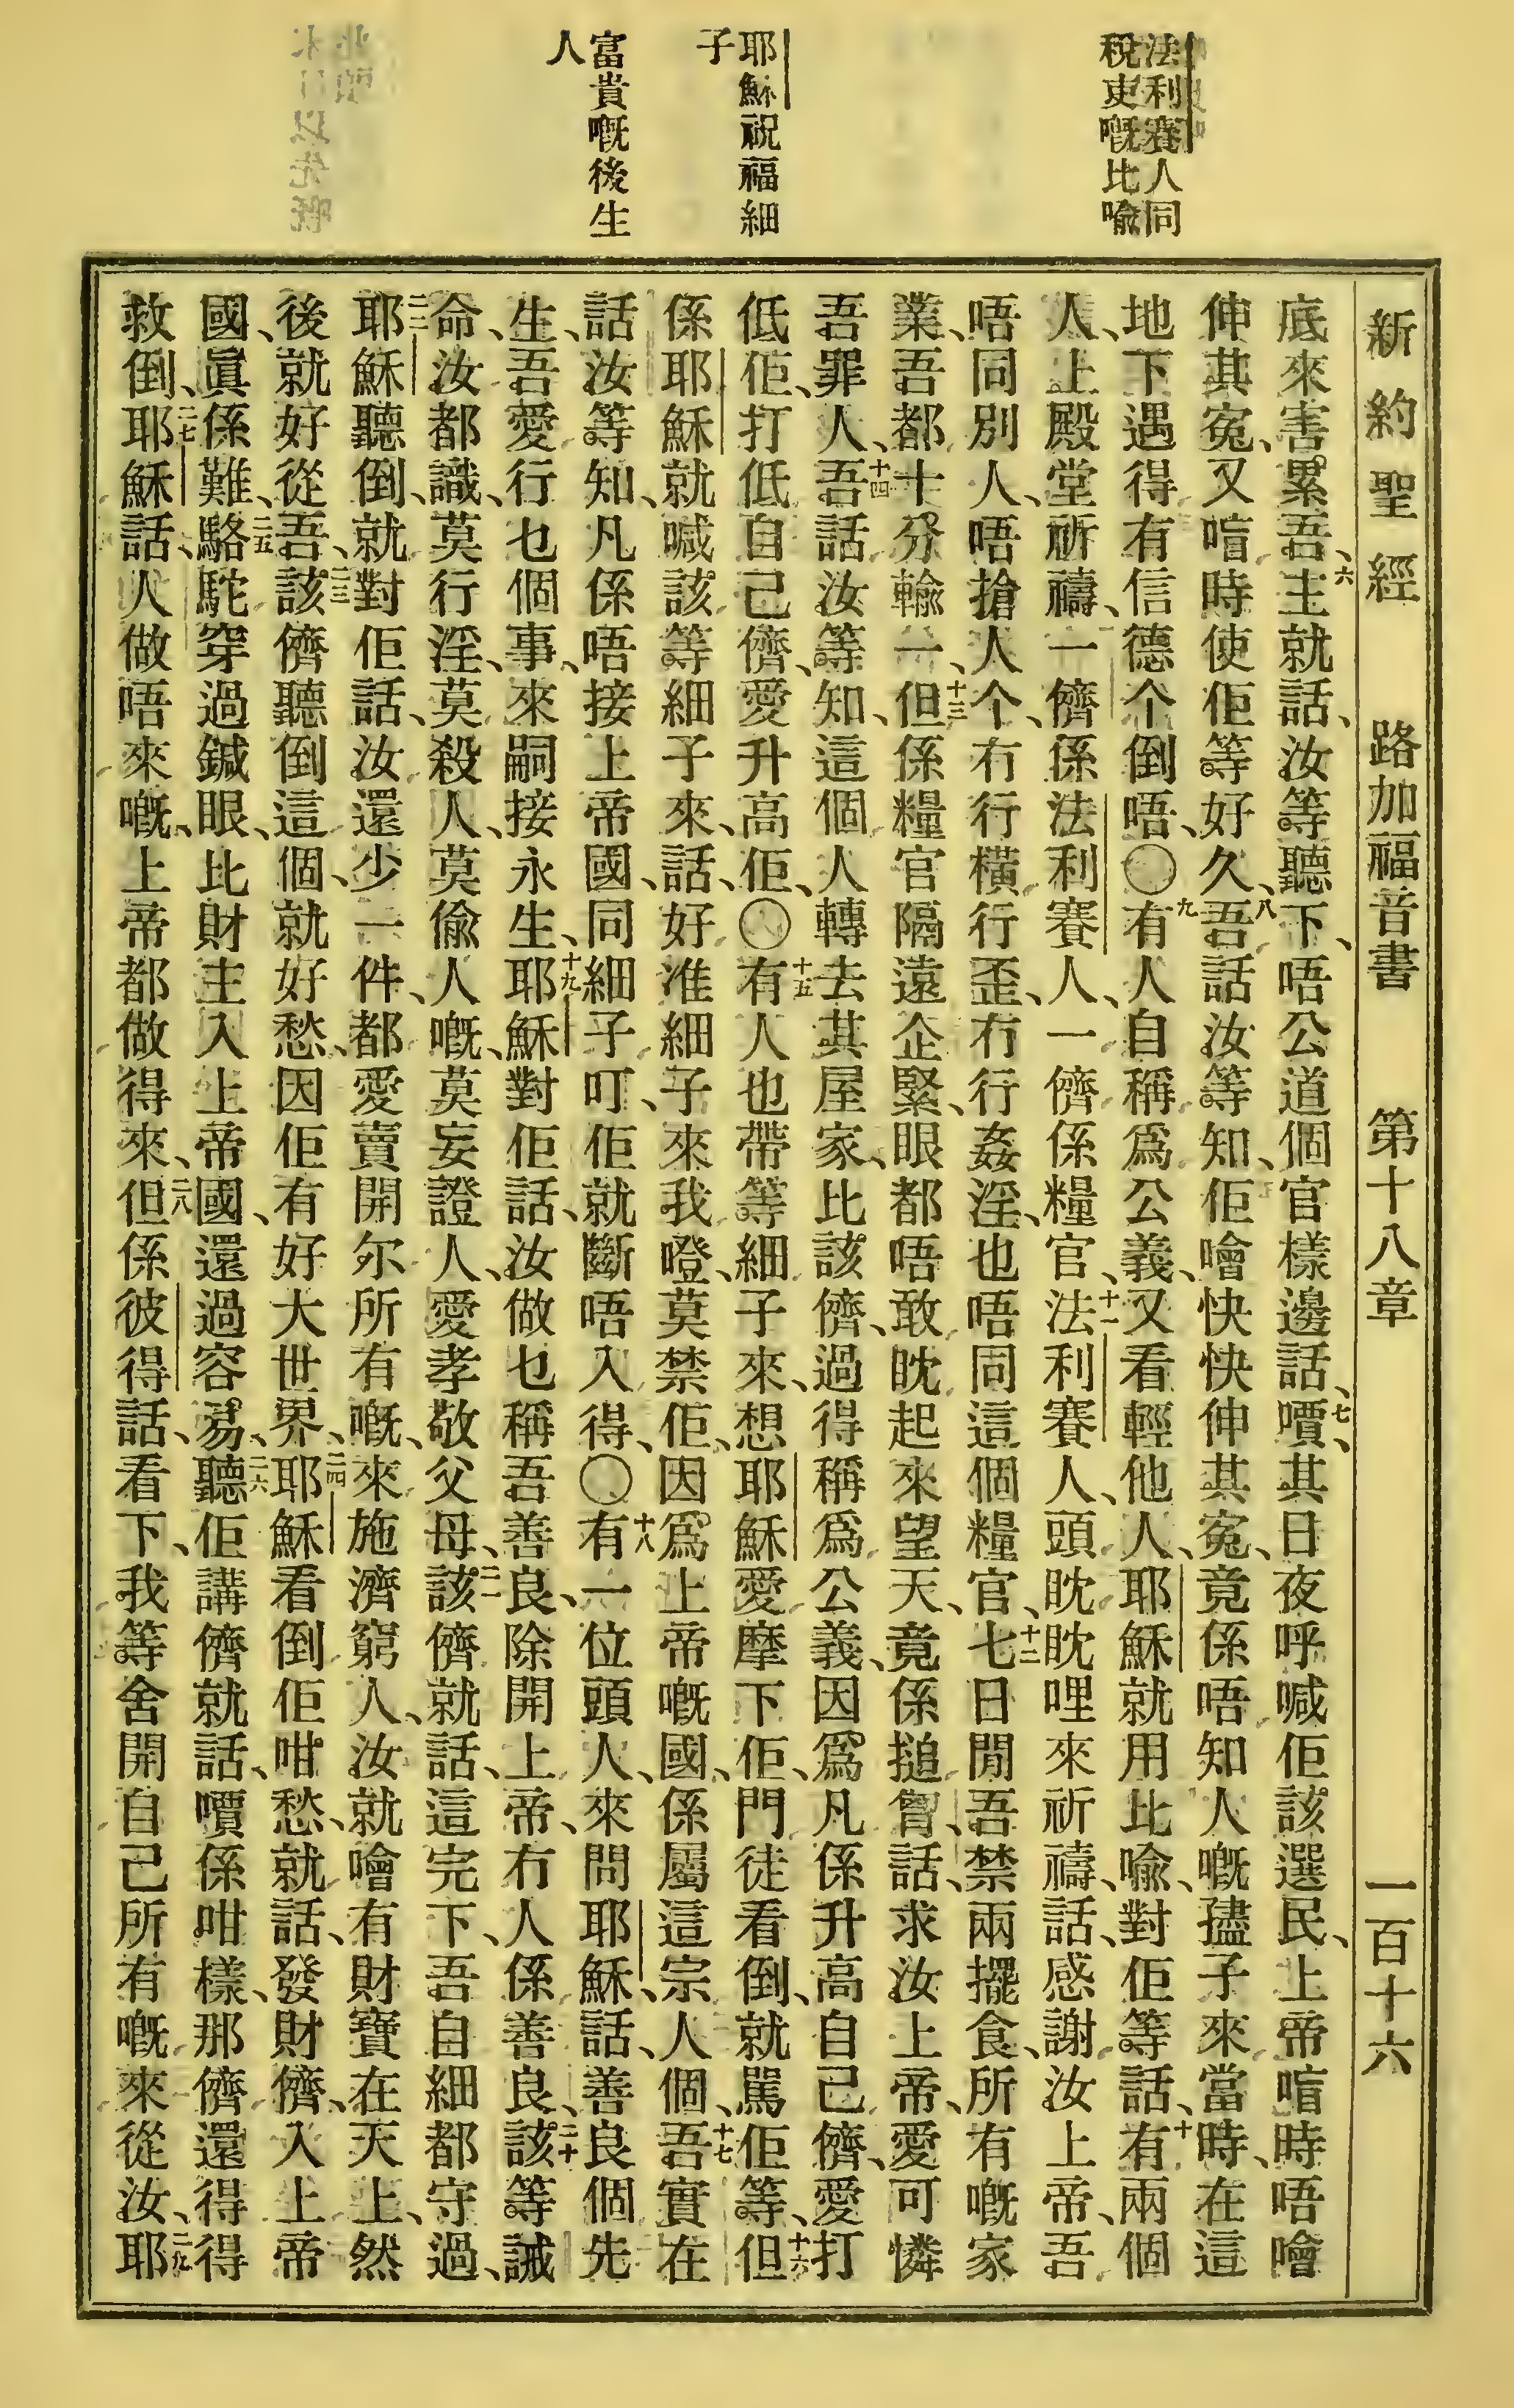 法利賽人同
稅吏嘅比喻
耶穌祝福細
子
富貴嘅後生
人
新約聖經 路加福音書 第十八章 一百十六
底來害累吾、六主就話、汝等聽下、唔公道個官樣邊話、七嘪、其日夜呼喊佢該選民、上帝喑時、唔噲
伸其寃、又喑時使佢等好久、八吾話汝等知、佢噲快快伸其寃、竟係唔知人嘅𡥧子來當時、在這
地下遇得有信德个倒唔、〇九有人自稱爲公義、又看輕他人、耶穌就用比喻、對佢等話、十有兩個
人、上殿堂祈禱、一儕係法利賽人、一儕係糧官、十一法利賽人、頭眈眈哩來祈禱、話、感謝汝上帝、吾
唔同別人、唔搶人个、冇行橫行歪、冇行姦淫、也唔同這個糧官、十二七日閒吾禁兩擺食、所有嘅家
業、吾都十分輸一、十三但係糧官隔遠企緊、眼都唔敢眈起來望天、竟係搥胷、話、求汝上帝、愛可憐
吾罪人、十四吾話汝等知、這個人轉去其屋家、比該儕、過得稱爲公義、因爲凡係升高自己儕、愛打
低佢、打低自己儕、愛升高佢、〇十五有人也帶等細子來、想耶穌愛摩下佢、門徒看倒、就罵佢等、十六但
係耶穌就喊該等細子來、話、好准細子來我嶝、莫禁佢、因爲上帝嘅國、係屬這宗人個、十七吾實在
話汝等知、凡係唔接上帝國、同細子叮、佢就斷唔入得、〇十八有一位頭人、來問耶穌、話、善良個先
生、吾愛行乜個事、來嗣接永生、十九耶穌對佢話、汝做乜稱吾善良、除開上帝、冇人係善良、二十該等誡
命、汝都識、莫行淫、莫殺人、莫偷人嘅、莫妄證人、愛孝敬父母、二一該儕就話、這完下、吾自細都守過、
二二耶穌聽倒、就對佢話、汝還少一件、都愛賣開尔所有嘅、來施濟窮人、汝就噲有財寶在天上、然
後就好從吾、二三該儕聽倒這個、就好愁、因佢有好大世界、二四耶穌看倒佢咁愁、就話、發財儕、入上帝
國、眞係難、二五駱駝穿過鍼眼、比財主入上帝國、還過容易、二六聽佢講儕就話、嘪係咁樣、那儕還得得
救倒、二七耶穌話、人做唔來嘅、上帝都做得來、二八但係彼得話、看下、我等舍開自己所有嘅、來從汝、二九耶